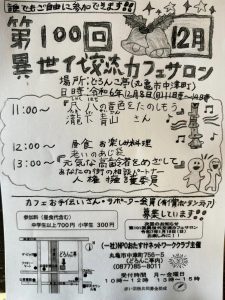 誰でもご自由に参加できます!!
第100回 12月
異世代交流カフェサロン
場所:どろんこ亭(丸亀市中津町)
日時:令和6年12月8日(日)11時~
11:00~
尺八の音色をたのしもう
瀧下
12:00~ 昼食 お楽しみ料理
老いのあじ袋
13:00~ 「元気な高齢者をめざして」
あなたの街の相談パートナー
人権擁護委員
カフェお手伝いさん・サポーター会員(有償ボランティア)
募集しています!!
参加料(昼食代含む)
中学生以上700円 小学生300円
(一社)NPOおたすけネットワーククラブ主催
丸亀市中津町756-5
(どろんこ亭内)
(0877)85-8011
受付時間 月~金曜日
10時~12時 13時~15時